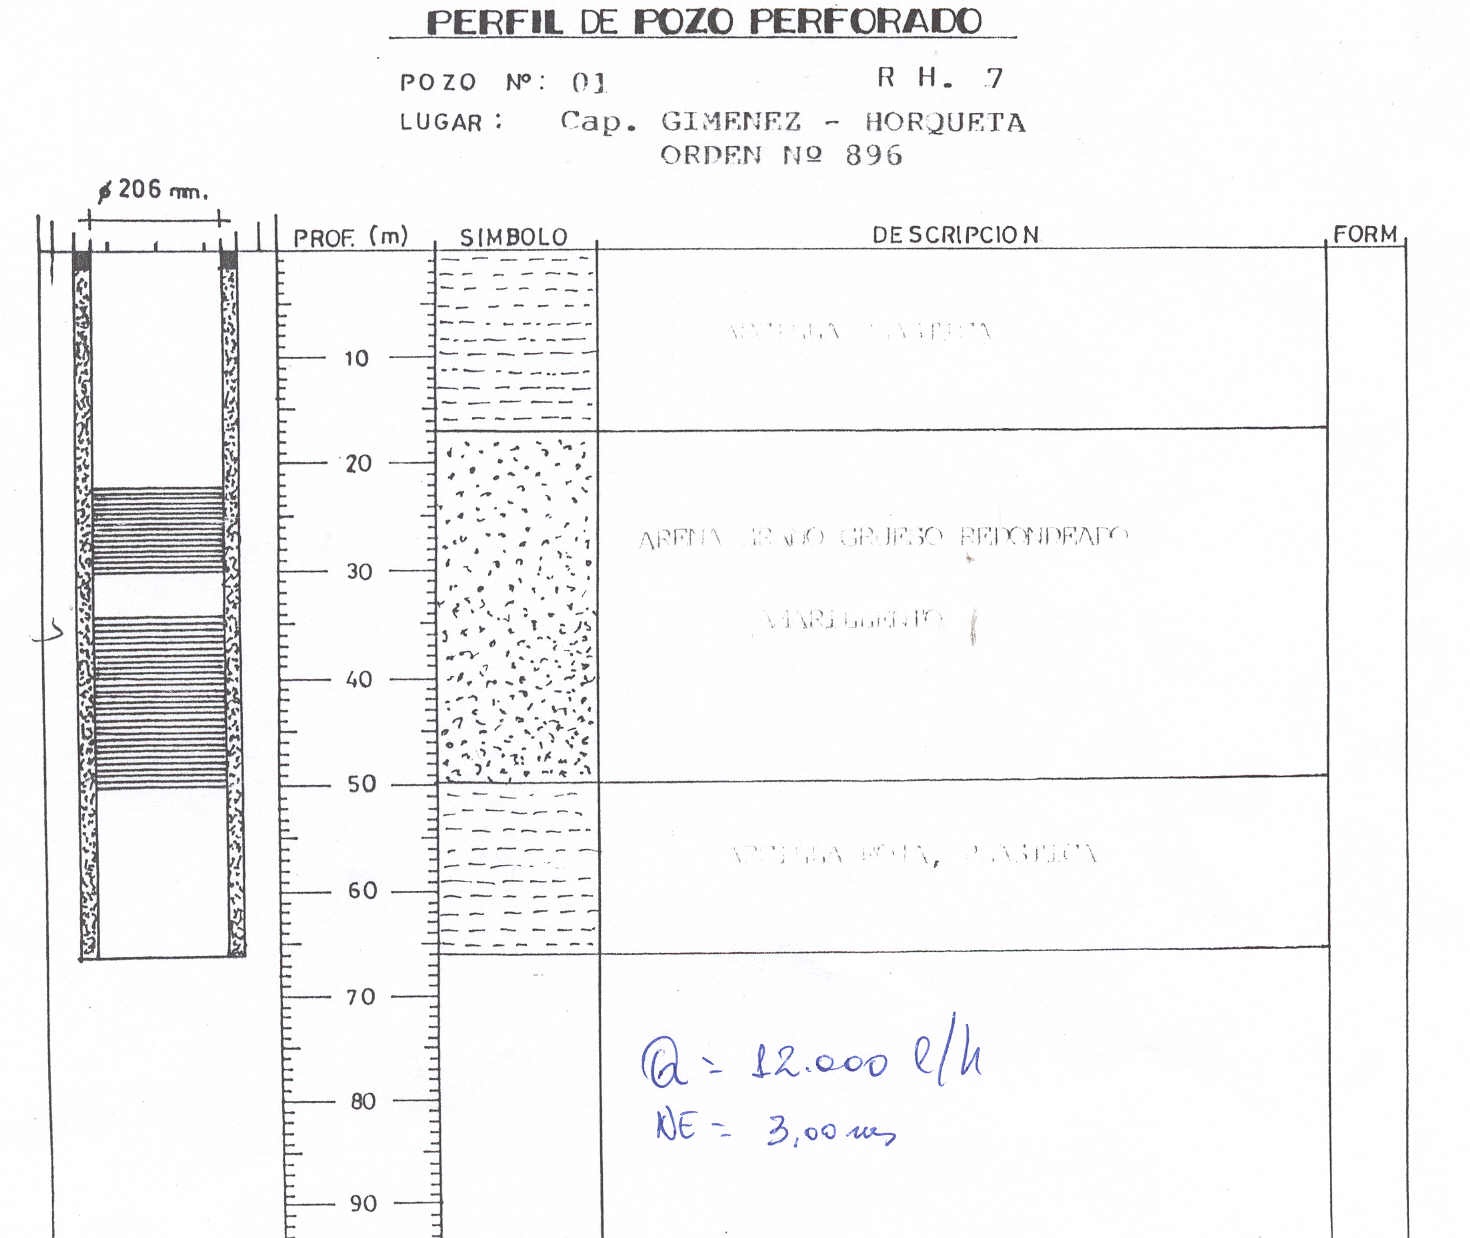 PERFIL DE POZO PERFORADO
POZO Nº: 01 R H. 7
LUGAR: Cap. GIMENEZ - HORQUETA
ORDEN Nº 896
ø 206 mm.
PROF. (m) SIMBOLO DESCRIPCION FORM
10
20
ARENA GRUESO REDONDEADO
30
40
50
ARCILLA ROJA, PLASTICA
60
70
Q = 12.000 l/h
80
NE = 3,00 ms
90